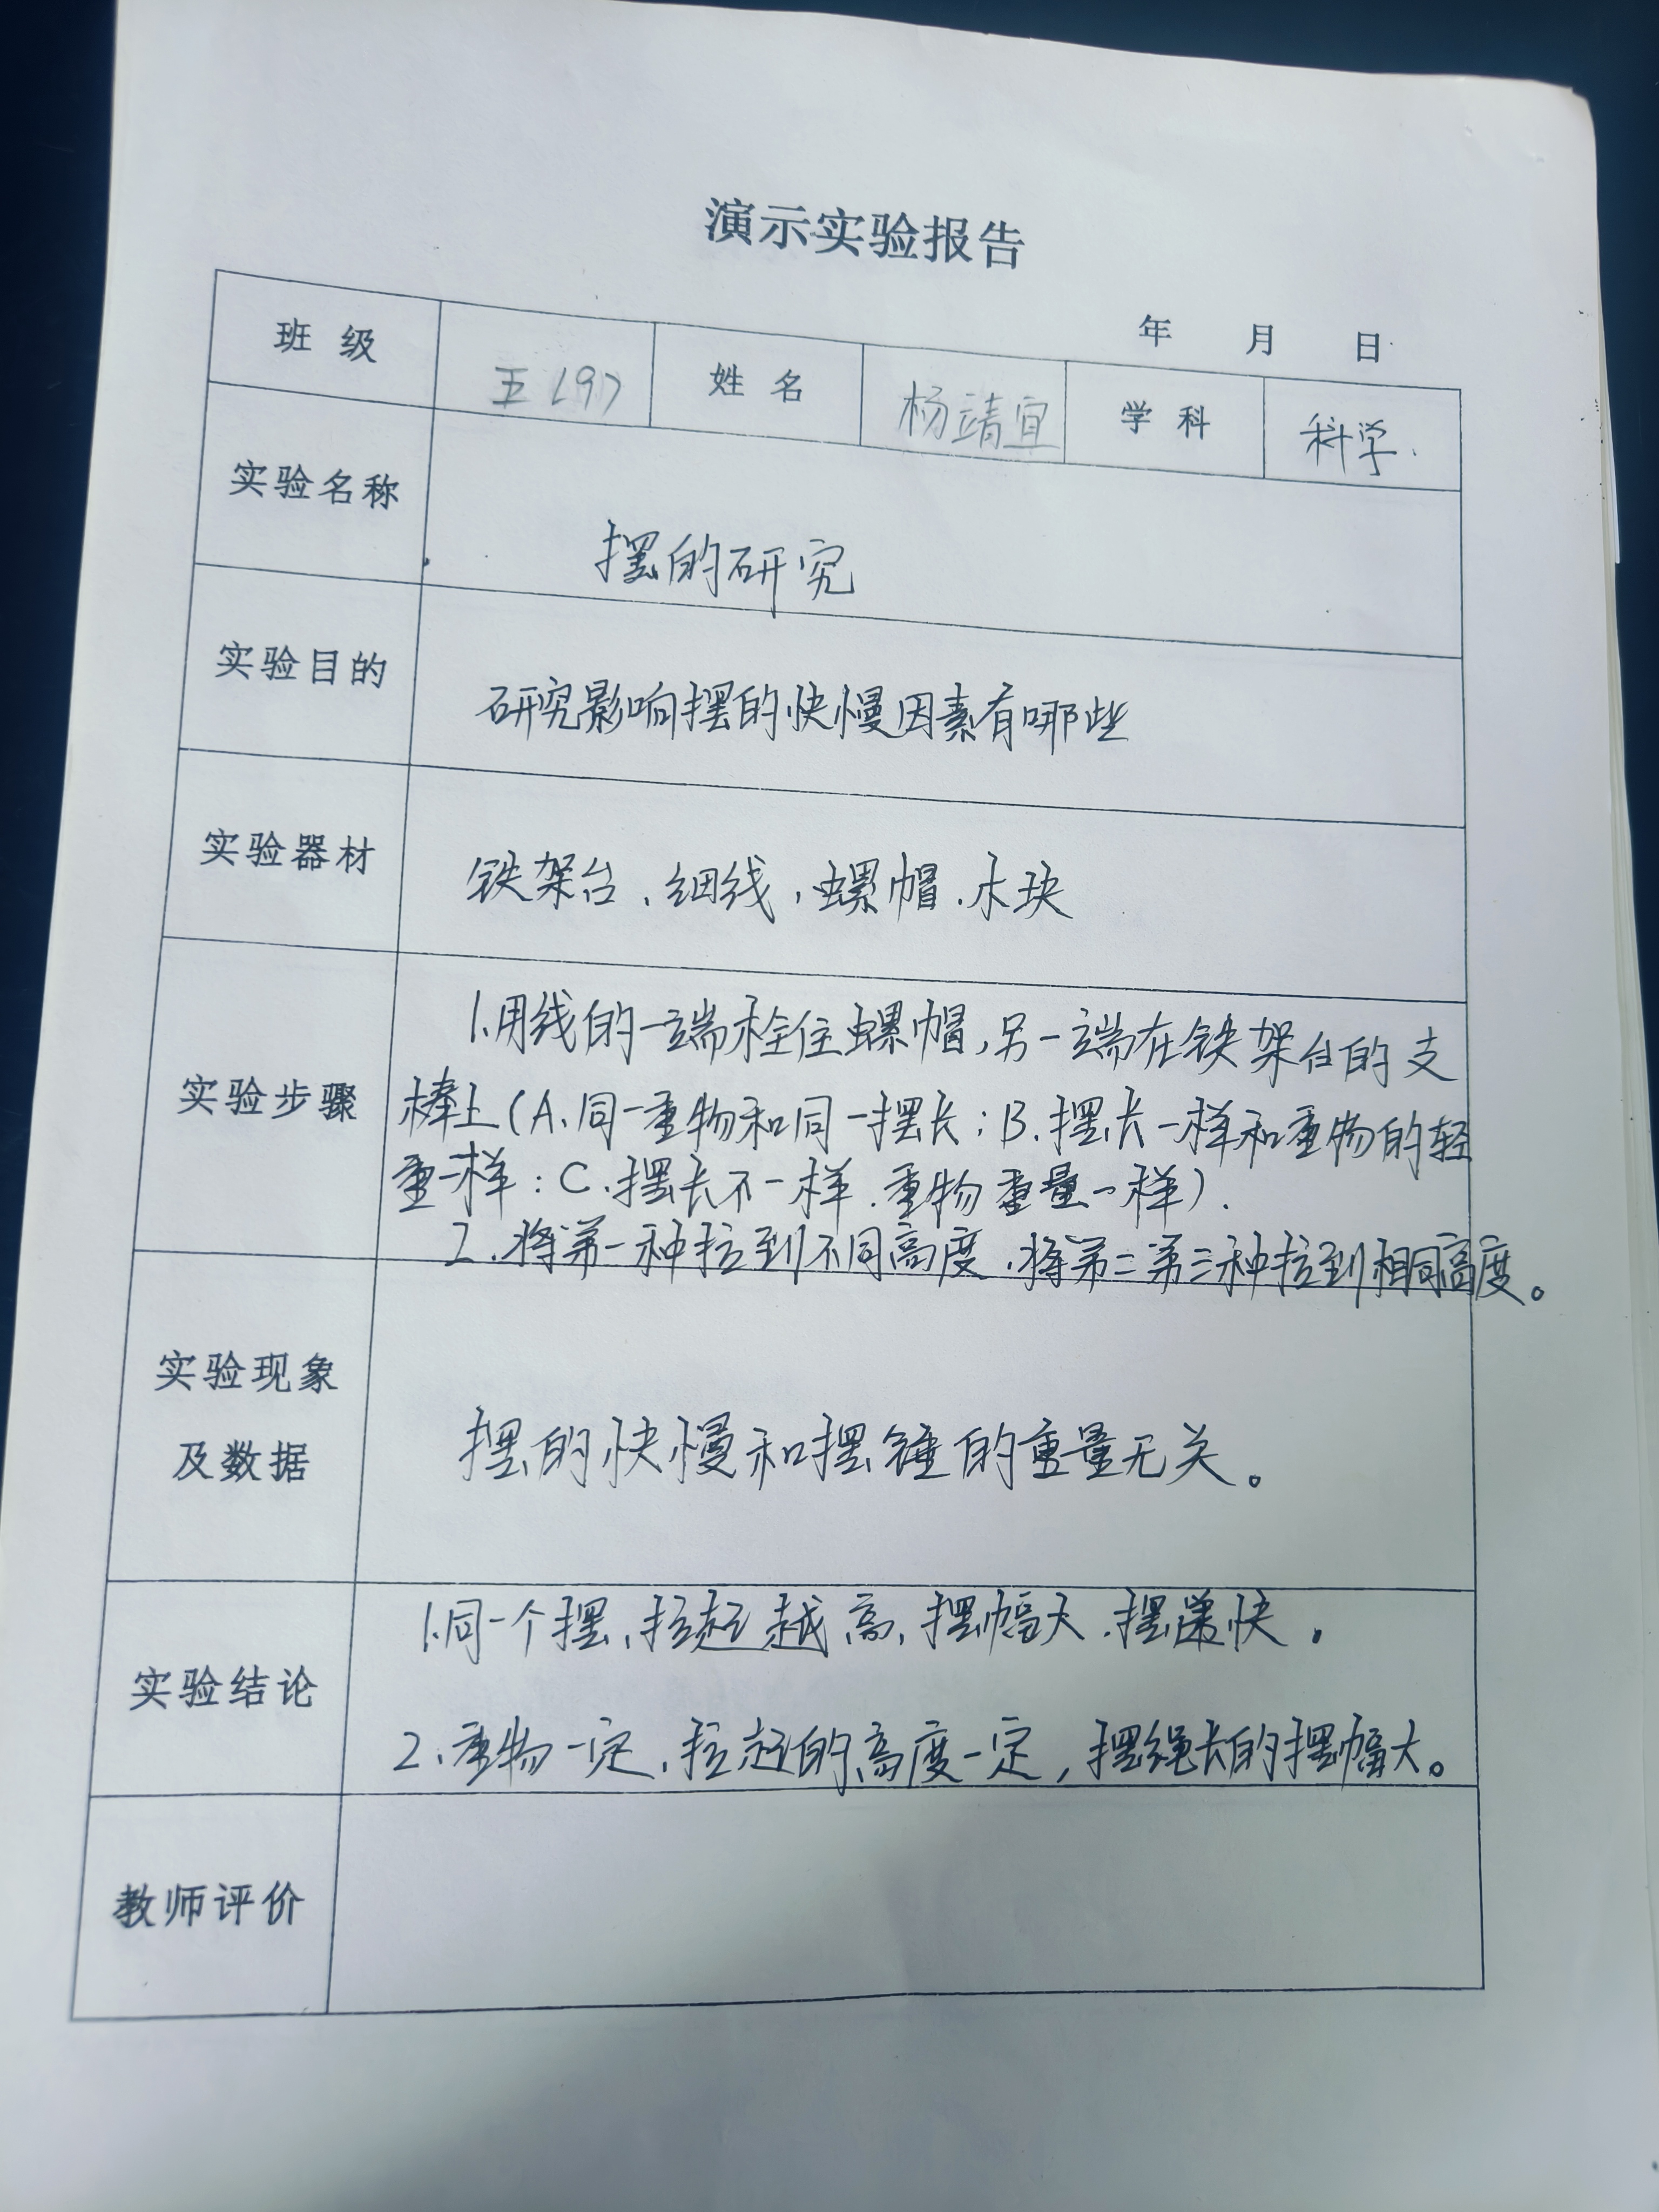 演示实验报告
年 月 日
班级 五(9) 姓名 杨靖宜 学科 科学
实验名称 摆的研究
实验目的 研究影响摆的快慢因素有哪些
实验器材 铁架台、细线、螺帽、木块
实验步骤
1.用线的一端栓住螺帽,另一端在铁架台的支
棒上(A.同一重物和同一摆长;B.摆长一样和重物的轻
重一样:C.摆长不一样.重物重量一样).
2.将第一种拉到不同高度.将第二第三种拉到相同高度。
实验现象
及数据
摆的快慢和摆锤的重量无关。
实验结论
1.同一个摆,拉起越高,摆幅大.摆速快.
2、重物一定,拉起的高度一定,摆绳长的摆幅大。
教师评价